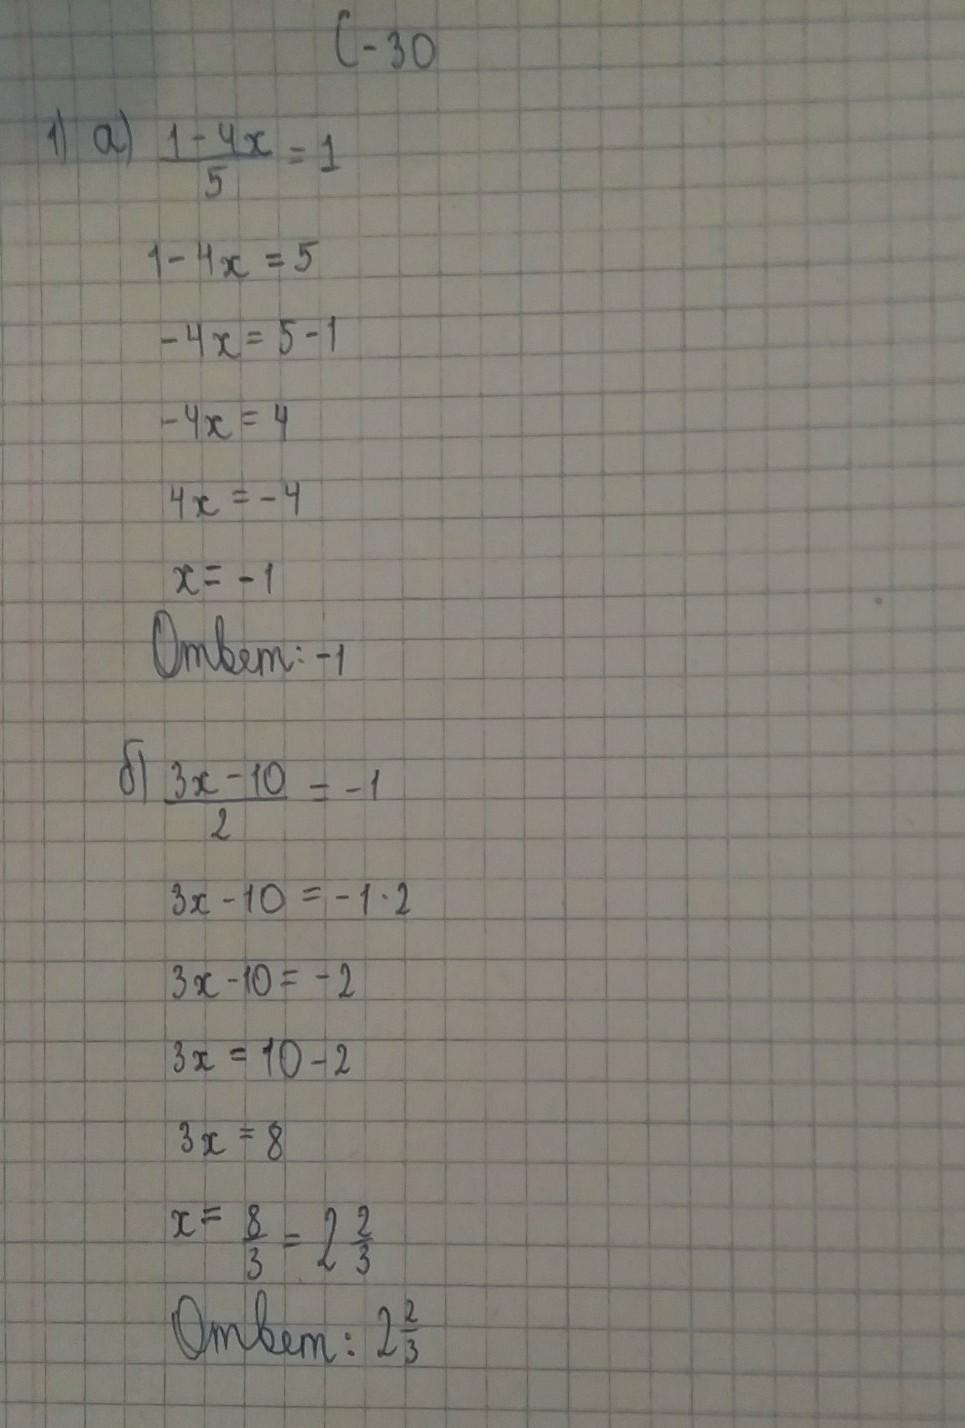 С-30
1) а) \frac{1-4x}{5} = 1
1-4x = 5
-4x = 5-1
-4x = 4
4x = -4
x = -1
Ответ: -1
б) \frac{3x-10}{2} = -1
3x-10 = -1·2
3x-10 = -2
3x = 10-2
3x = 8
x = \frac{8}{3} = 2\frac{2}{3}
Ответ: 2\frac{2}{3}